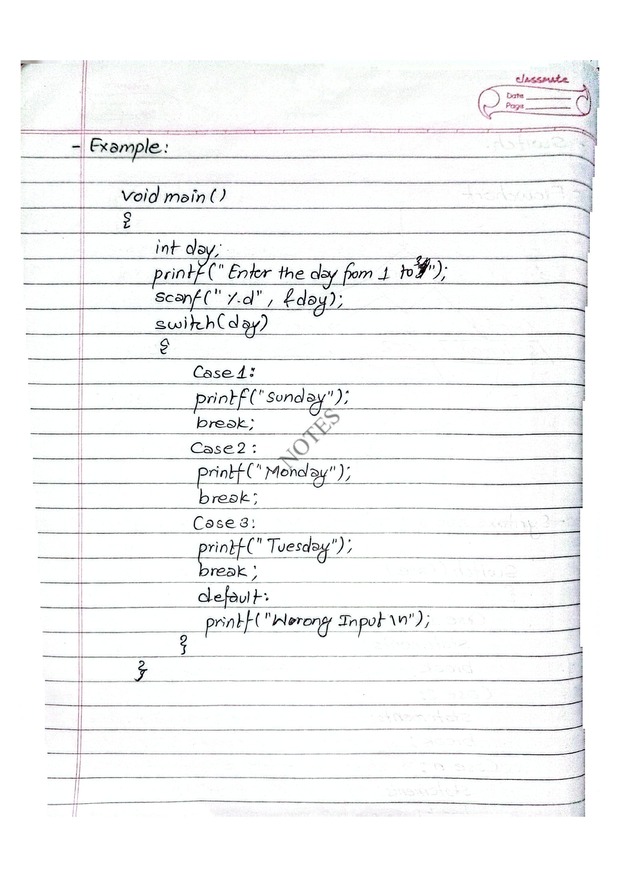 classmate
Date
Page
- Example:
void main()
{
int day;
printf("Enter the day from 1 to 3");
scanf("%d", &day);
switch(day)
{
Case 1:
printf("Sunday");
break;
Case 2:
printf("Monday");
break;
Case 3:
printf("Tuesday");
break;
default:
printf("Worong Input \n");
}
}
NOTES